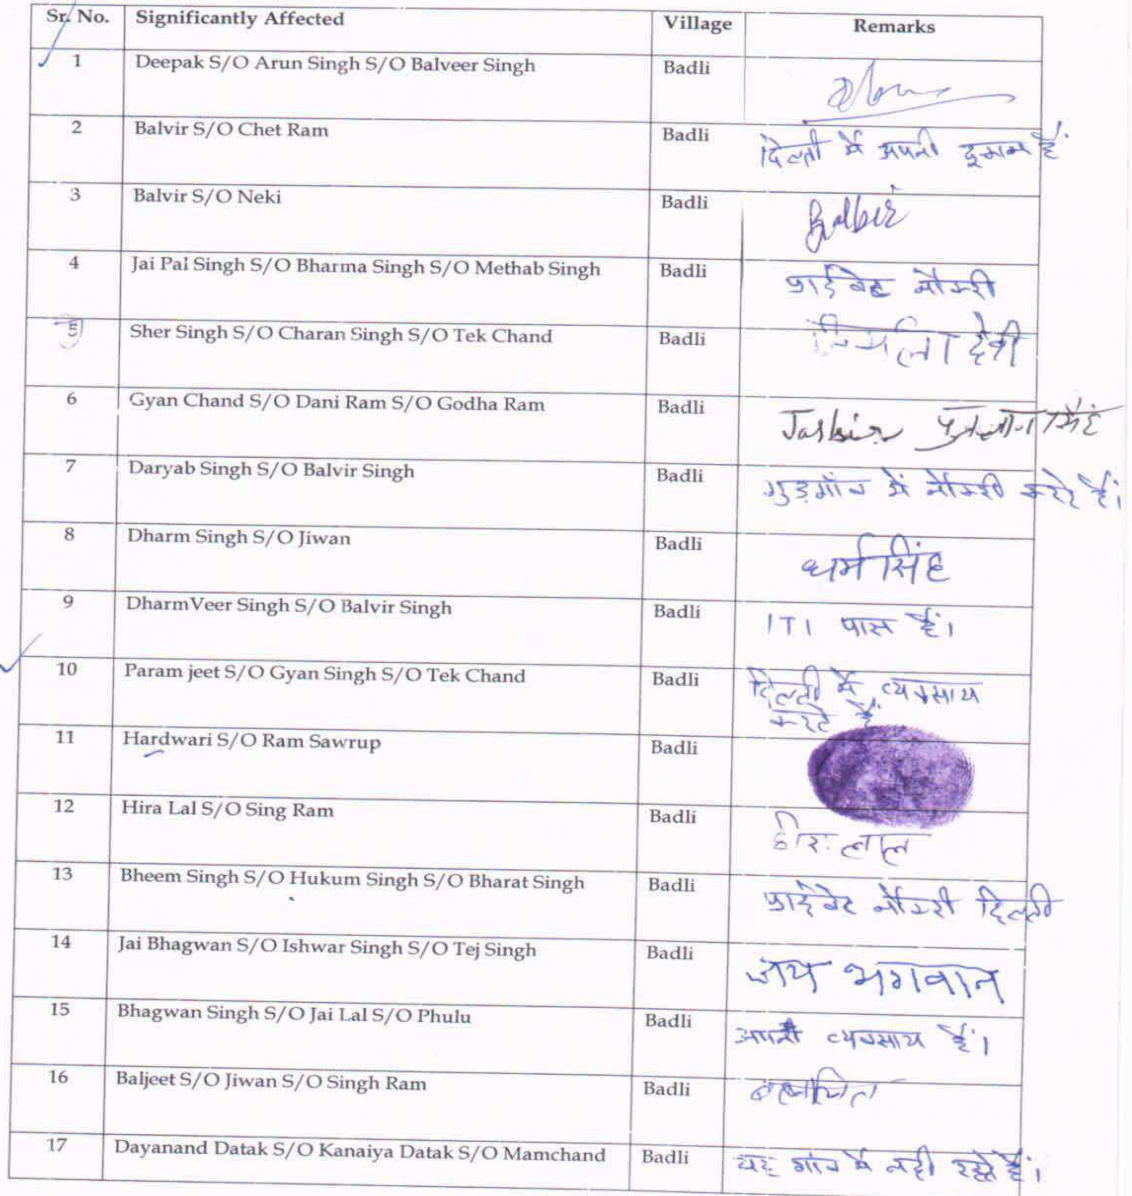 Sr. No. Significantly Affected Village Remarks
1 Deepak S/O Arun Singh S/O Balveer Singh Badli
2 Balvir S/O Chet Ram Badli दिल्ली में अपनी दुकान है
3 Balvir S/O Neki Badli Balbir
4 Jai Pal Singh S/O Bharma Singh S/O Methab Singh Badli प्राईवेट नौकरी
5 Sher Singh S/O Charan Singh S/O Tek Chand Badli देवी
6 Gyan Chand S/O Dani Ram S/O Godha Ram Badli Jasbir
7 Daryab Singh S/O Balvir Singh Badli गुड़गाँव में नौकरी करते हैं।
8 Dharm Singh S/O Jiwan Badli धर्म सिंह
9 DharmVeer Singh S/O Balvir Singh Badli ITI पास हैं।
10 Param jeet S/O Gyan Singh S/O Tek Chand Badli दिल्ली में व्यवसाय
करते हैं
11 Hardwari S/O Ram Sawrup Badli
12 Hira Lal S/O Sing Ram Badli हीरालाल
13 Bheem Singh S/O Hukum Singh S/O Bharat Singh Badli प्राईवेट नौकरी दिल्ली
14 Jai Bhagwan S/O Ishwar Singh S/O Tej Singh Badli जय भगवान
15 Bhagwan Singh S/O Jai Lal S/O Phulu Badli अपना व्यवसाय हैं।
16 Baljeet S/O Jiwan S/O Singh Ram Badli
17 Dayanand Datak S/O Kanaiya Datak S/O Mamchand Badli यह गांव में नही रहते हैं।